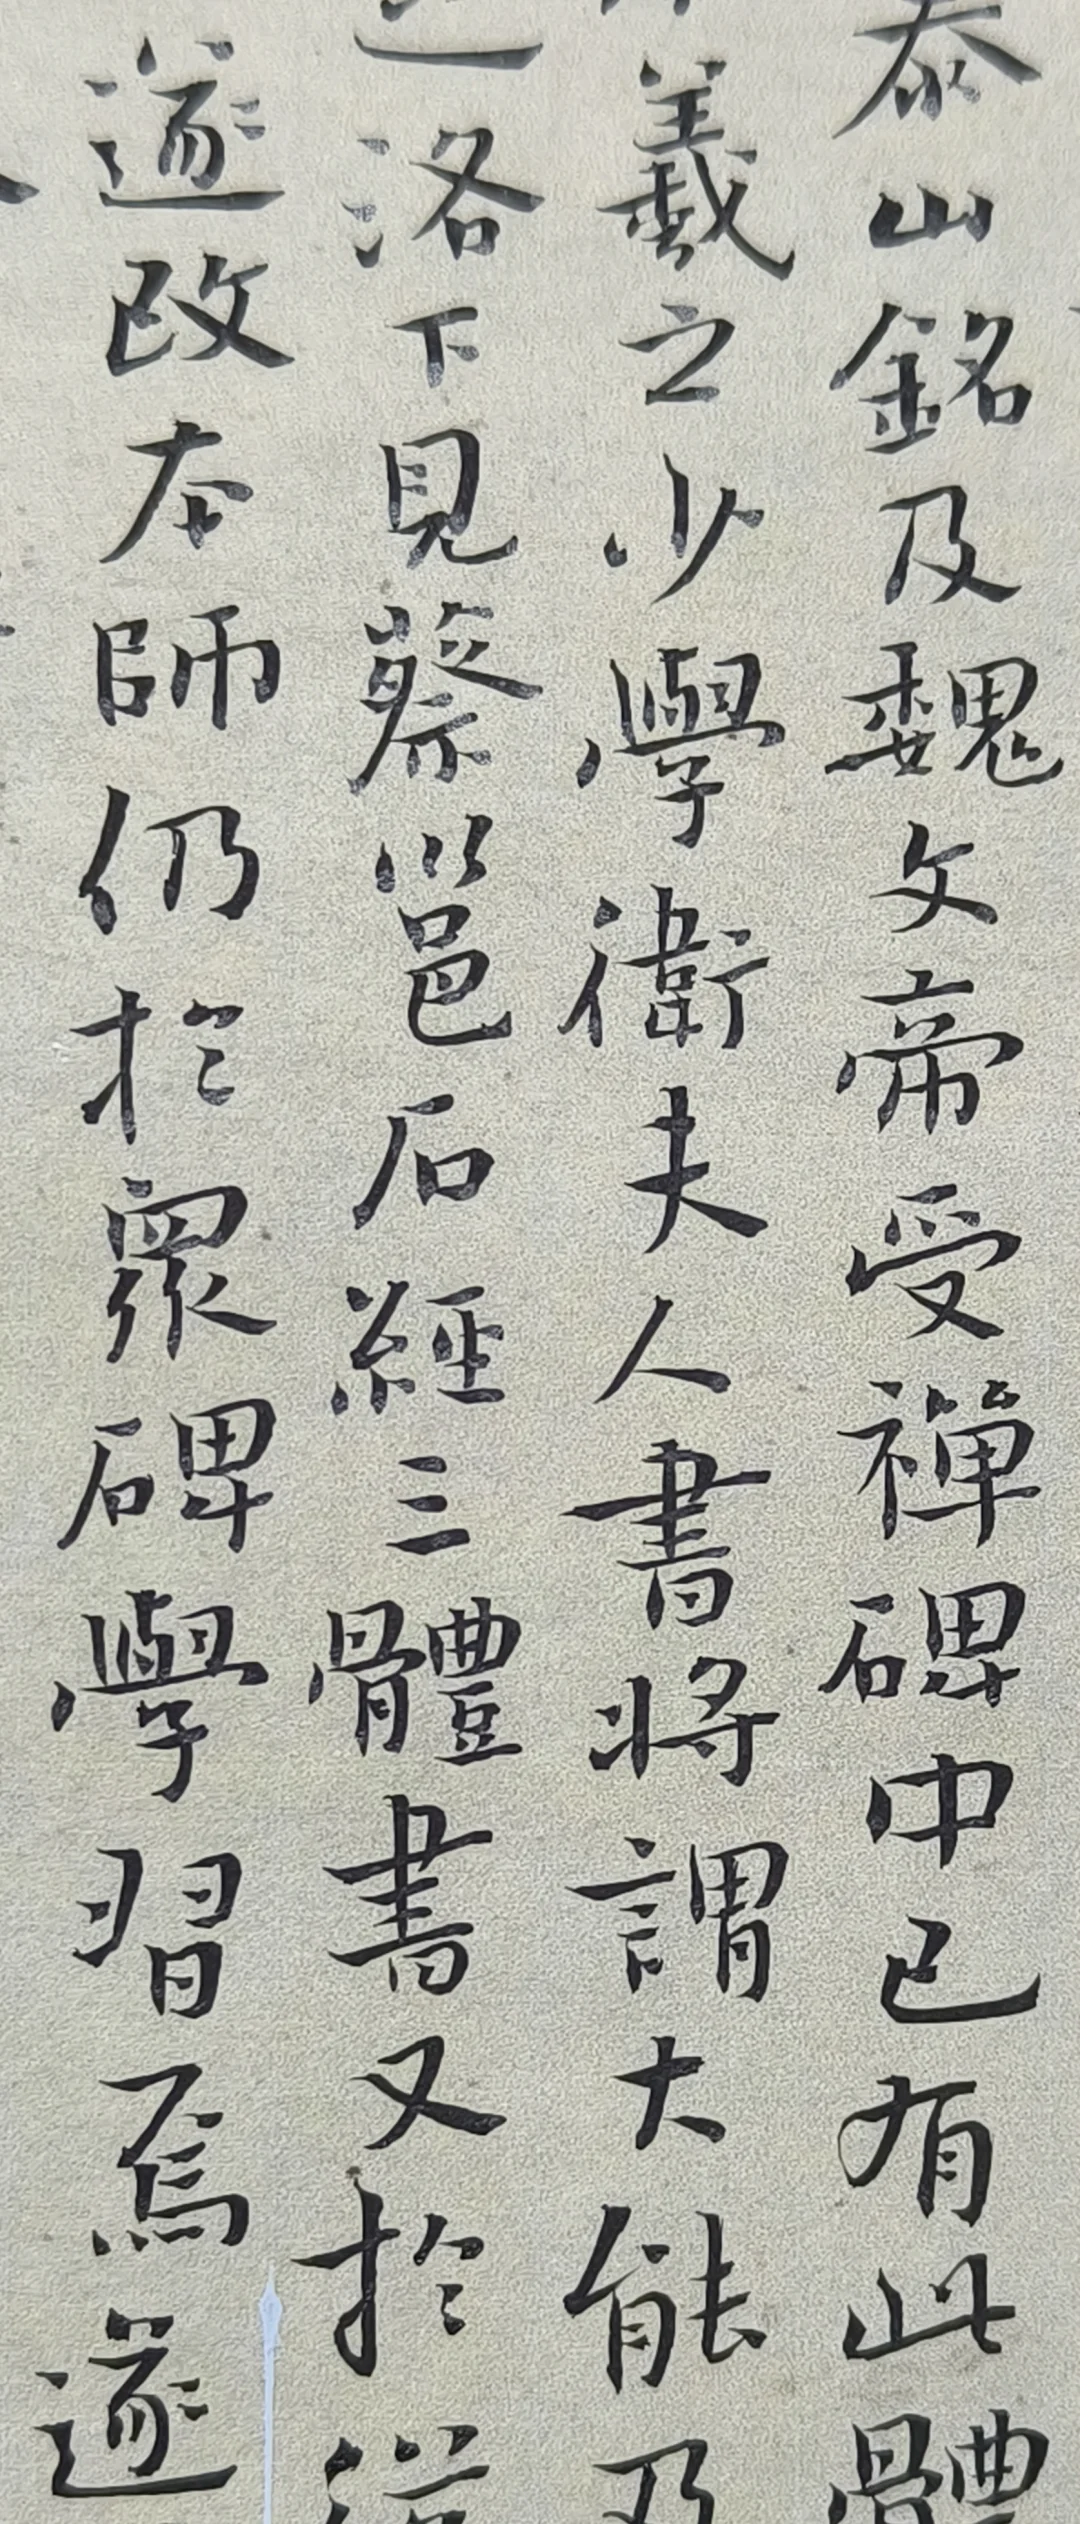 泰山銘及魏文帝受禪碑中已有此體
羲之少學衛夫人書將謂大能及
洛下見蔡邕石經三體書又於從
遂改本師仍於眾碑學習焉遂